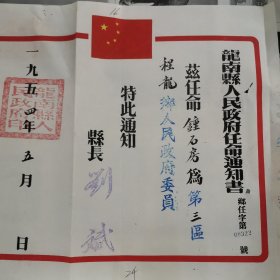 龍南縣人民政府任命通知書
鄉任字第
號
茲任命鍾石房爲第三區
程龍鄉人民政府委員
特此通知
縣長
劉斌
一九五四年五月
日
龍南縣人民政府印